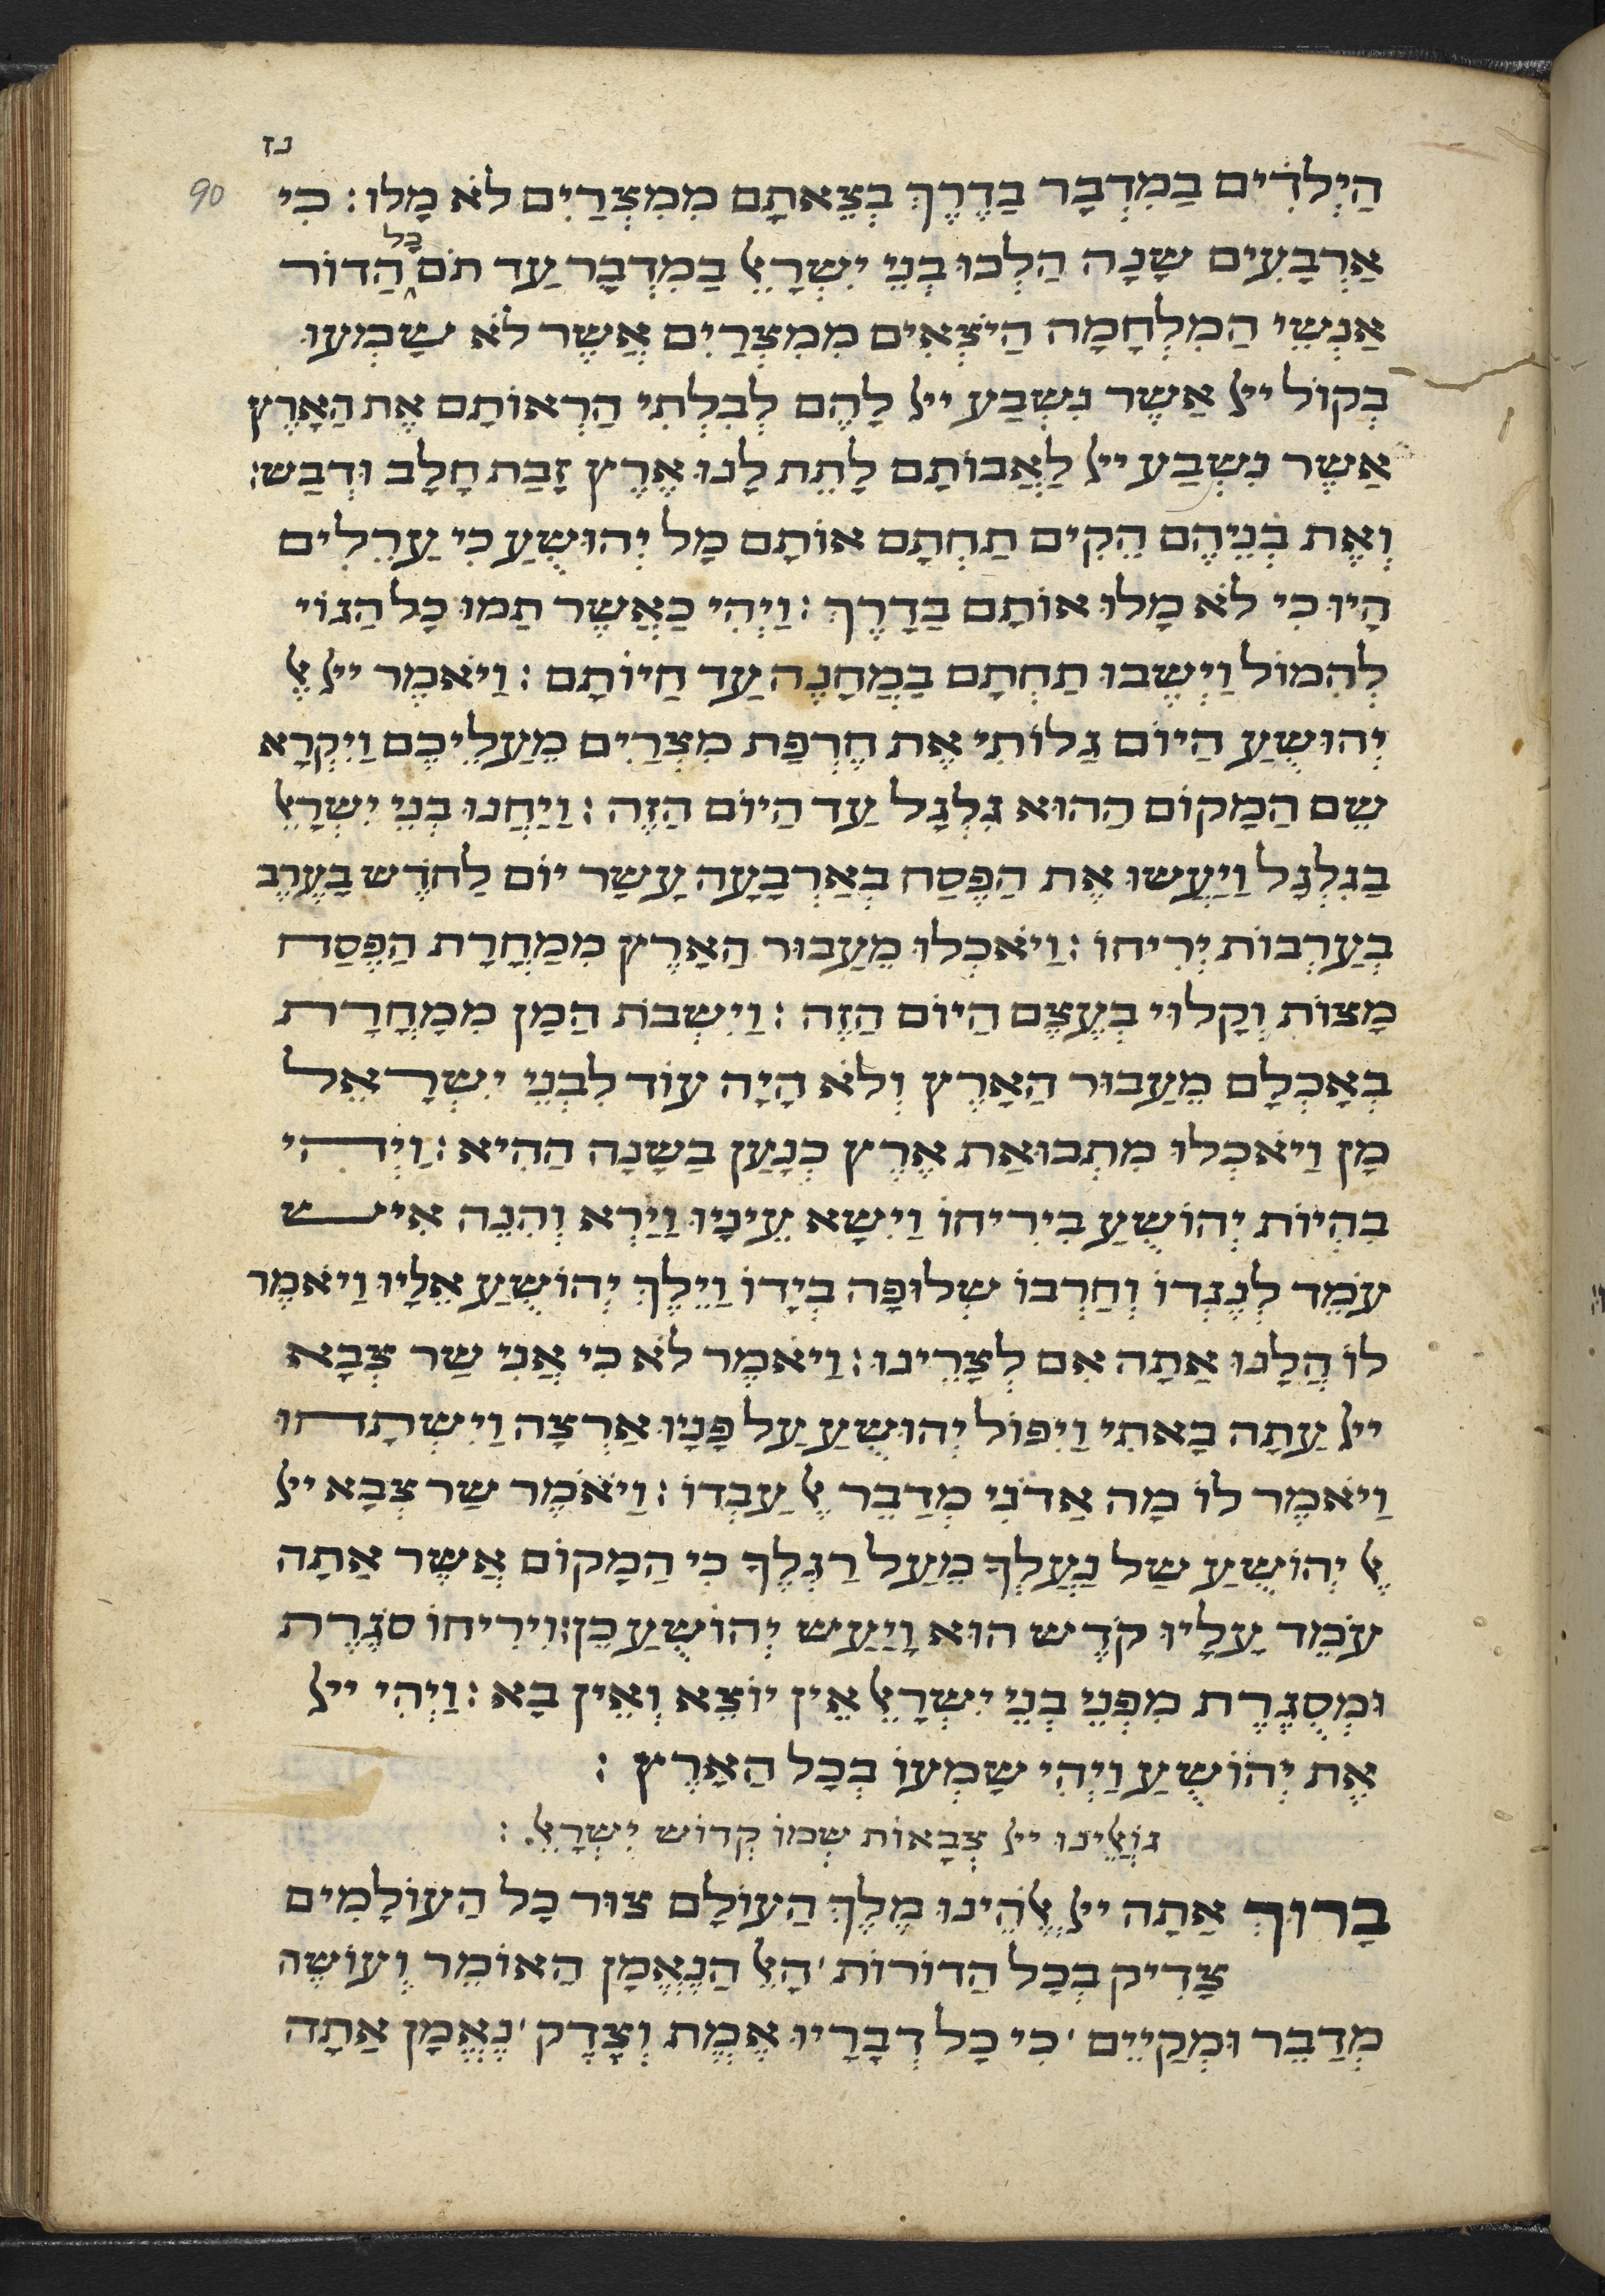 נז
90
הַיְלֹדִים בַמִדְבָר בַדֶרֶךְ בְצֵאתָם מִמִצְרַיִם לֹא מָלוּ: כִי
אַרְבָעִים שָנָה הַלְכוּ בְנֵי יִשְרָﭏֵ בַמִדְבָר עַד תֹם כָל הַדוֹר
אַנְשֵי הַמִלְחָמָה הַיֹצְאִים מִמִצְרַיִם אֲשֶר לֹא שָמְעוּ
בְקוֹל ייל אַשֶר נִשְבַע ייל לָהֶם לְבִלְתִי הַרְאוֹתָם אֶת הַאָרֶץ
אַשֶר נִשְבַע ייל לַאֲבוֹתָם לָתֵת לָנוּ אֶרֶץ זָבַת חָלָב וּדְבַש:
וְאֶת בְנֵיהֶם הֵקִים תַחְתָם אוֹתָם מָל יְהוּשֻעַ כִי עַרֵלִים
הָיוּ כִי לֹא מָלוּ אוֹתָם בַדָרֶךְ: וַיְהִי כַאֲשֶר תַמוּ כָל הַגוֹי
לְהִמוֹל וַיְשֶבוּ תַחְתָם בָמַחֲנֶה עַד חַיוֹתָם: וַיֹאמֶר ייל ﭏֶ
יְהוּשֻעַ הַיוֹם גַלוֹתִי אֶת חֶרְפַת מִצְרַיִם מֵעַלֵיכֶם וַיִקְרָא
שֵם הַמָקוֹם הַהוּא גִלְגָל עַד הַיוֹם הַזֶה: וַיַחֲנוּ בְנֵי יִשְרָﭏֵ
בַגִלְגָל וַיַעֲשוּ אֶת הַפֶסַח בְאַרְבָעָה עָשַר יוֹם לַחֹדֶש בָעֶרֶב
בְעַרְבוֹת יְרִיחוֹ: וַיֹאכְלוּ מֵעַבוּר הַאָרֶץ מִמַחֳרָת הַפֶסַח
מָצוֹת וְקָלוּי בְעֶצֶם הַיוֹם הַזֶה: וַיִשְבֹת הַמָן מִמָחֳרָת
בְאָכְלָם מֵעַבוּר הַאָרֶץ וְלֹא הָיָה עוֹד לִבְנֵי יִשְרָאֵל
מָן וַיֹאכְלוּ מִתְבוּאַת אֶרֶץ כְנָעַן בַשָנָה הַהִיא: וַיְהִי
בִהְיוֹת יְהוֹשֻעַ בִירִיחוֹ וַיִשָא עֵינָיו וַיַרְא וְהִנֵה אִיש
עֹמֵד לְנֶגְדוֹ וְחַרְבוֹ שְלוּפָה בְיָדוֹ וַיֵלֶךְ יְהוֹשֻעַ אֵלָיו וַיֹאמֶר
לוֹ הֲלָנוּ אַתָה אִם לְצָרֵינוּ: וַיֹאמֶר לֹא כִי אֲנִי שַר צְבָא
ייל עַתָה בָאתִי וַיִפוֹל יְהוּשֻעַ עַל פָנָיו אַרְצָה וַיִשְתָחוּ
וַיֹאמֶר לוֹ מָה אַדֹנִי מְדַבֵר ﭏֶ עַבְדוֹ: וַיֹאמֶר שַר צְבָא ייל
ﭏֶ יְהוֹשֻעַ שַל נַעֲלְךָ מֵעַל רַגְלֶךָ כִי הַמָקוֹם אֲשֶר אַתָה
עֹמֵד עָלָיו קֹדֶש הוּא וָיַעַש יְהוֹשֻעַ כֵן: וִירִיחוֹ סֹגֶרֶת
וּמְסֻגֶרֶת מִפְנֵי בְנֵי יִשְרָﭏֵ אֵין יוֹצֵא וְאֵין בָא: וַיְהִי ייל
אֶת יְהוֹשֻעַ וַיְהִי שָמְעוֹ בְכָל הַאָרֶץ:
גוֹﭏֵינוּ ייל צְבָאוֹת שְמוֹ קְדוֹש יִשְרָﭏֵ:
בָרוּךְ אַתָה ייל ﭏֱהֵינוּ מֶלֶךְ הַעוֹלָם צוּר כָל הַעוֹלָמִים
צַדִיק בְכָל הַדוֹרוֹת ׳ הָﭏֵ הַנֶאֱמָן הַאוֹמֵר וְעוֹשֶה
מְדַבֵר וּמְקַיֵים ׳ כִי כָל דְבָרָיו אֱמֶת וְצֶדֶק ׳ נֶאֱמָן אַתָה